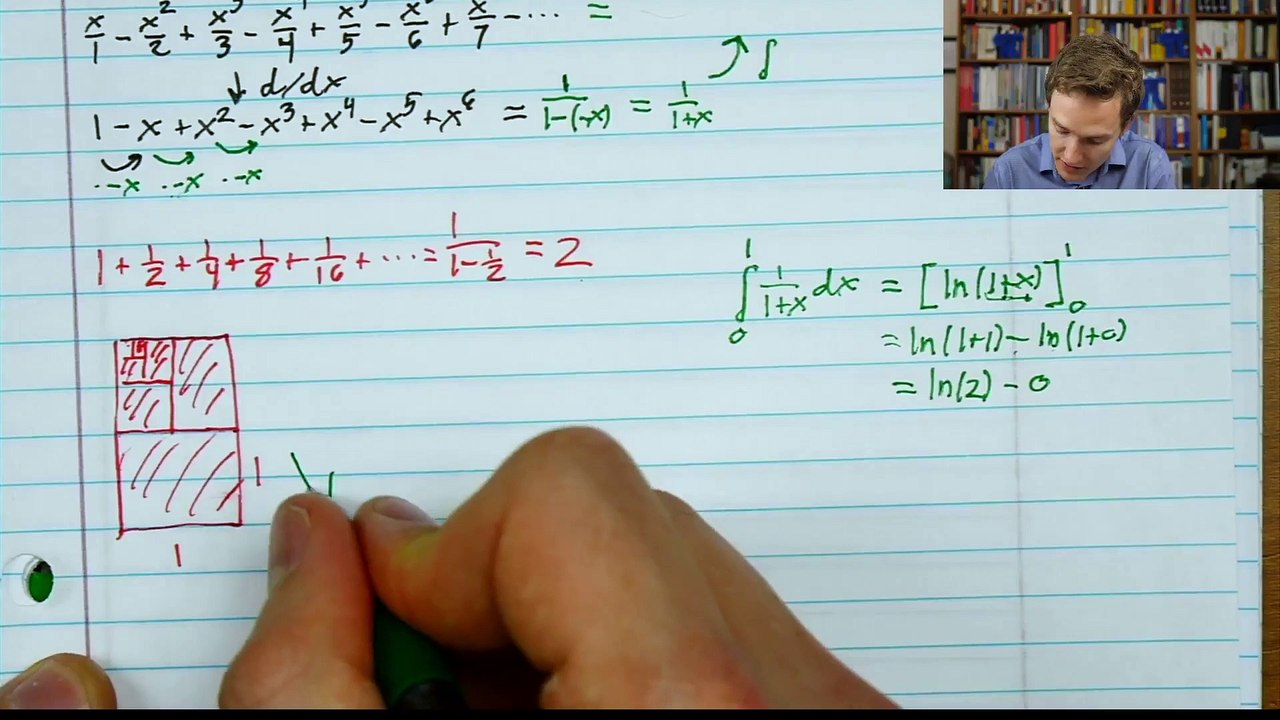 x/1 - x²/2 + x³/3 - x⁴/4 + x⁵/5 - x⁶/6 + x/7 - ⋯ =
↓ d/dx
↗ ∫
1 - x + x² - x³ + x⁴ - x⁵ + x⁶ = 1/(1-(-x)) = 1/(1+x)
·-x ·-x ·-x
1 + 1/2 + 1/4 + 1/8 + 1/16 + ⋯ = 1/(1-1/2) = 2
∫₀¹ 1/(1+x) dx = [ln(1+x)]₀¹
= ln(1+1) - ln(1+0)
= ln(2) - 0
1
1